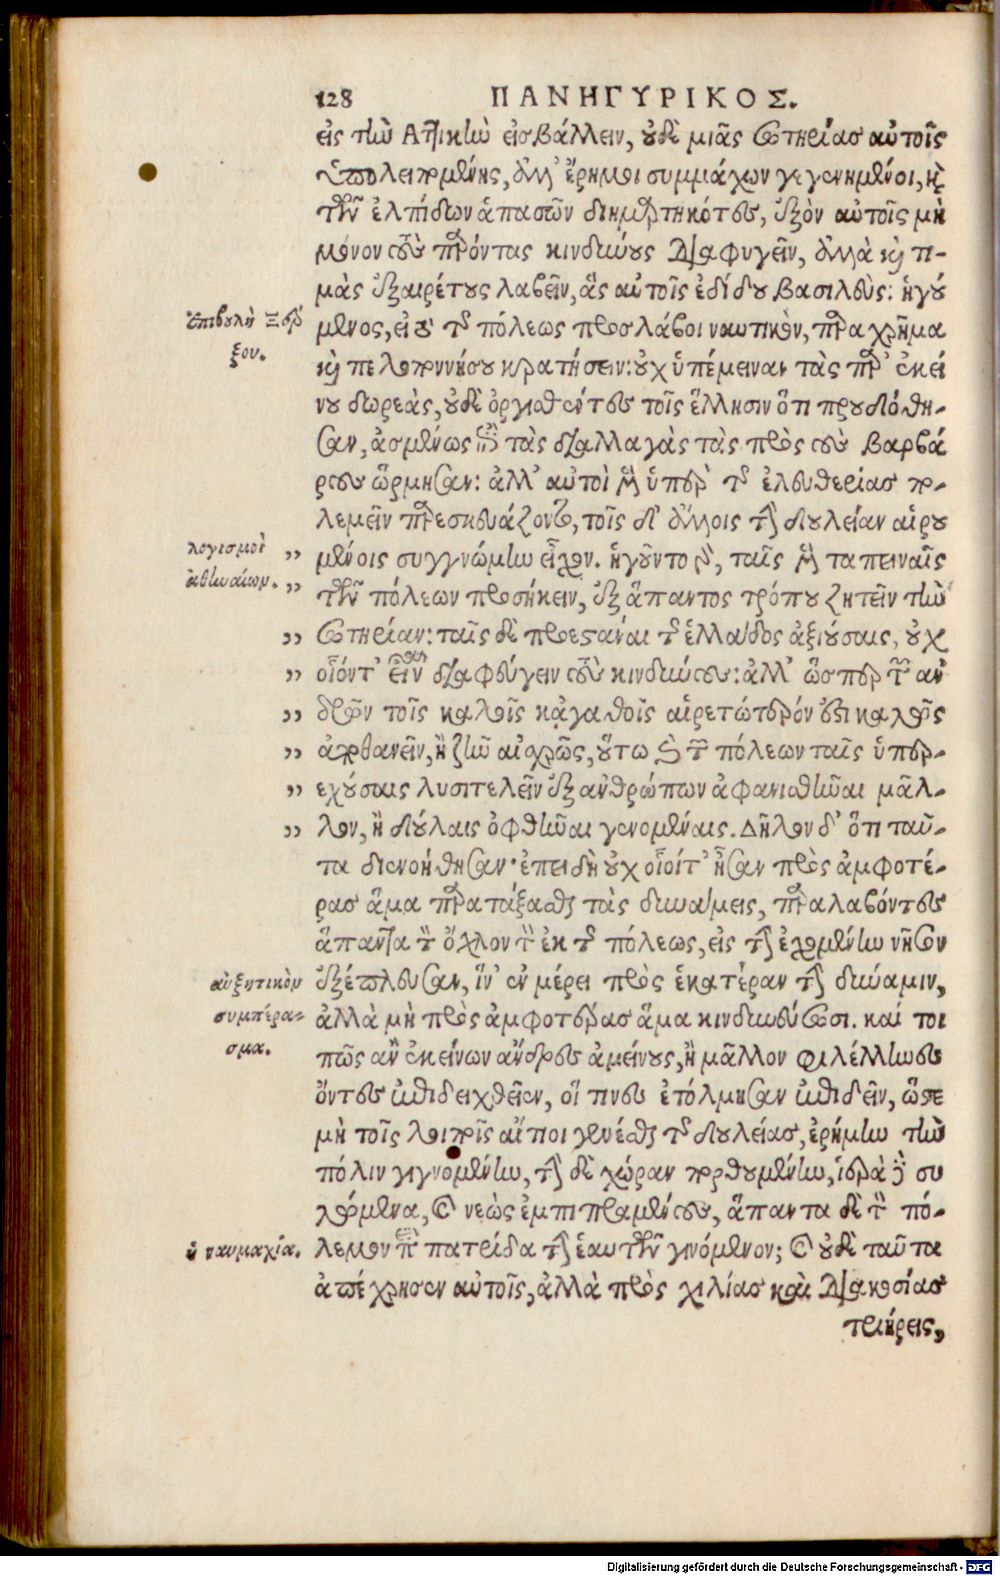 128 ΠΑΝΗΓΥΡΙΚΟΣ.
εἰς τὴν Ἀττικὴν εἰσβάλλειν, οὐδὲ μιᾶς σωτηρίας αὐτοῖς
ὑπολειπομένης, ἀλλ' ἔρημοι συμμάχων γεγενημένοι, καὶ
τῶν ἐλπίδων ἁπασῶν διημαρτηκότες, ἐξὸν αὐτοῖς μὴ
μόνον τοὺς παρόντας κινδύνους διαφυγεῖν, ἀλλὰ καὶ τι-
μὰς ἐξαιρέτους λαβεῖν, ἃς αὐτοῖς ἐδίδου βασιλεὺς: ἡγού
μενος, εἰ τὸ τῆς πόλεως προσλάβοι ναυτικὸν, παρα χρῆμα
καὶ πελοποννήσου κρατήσειν: οὐχ ὑπέμειναν τὰς παρ' ἐκεί
νου δωρεὰς, οὐδὲ ὀργισθέντες τοῖς ἕλλησιν ὅτι προυδόθη-
σαν, ἀσμένως ἐπὶ τὰς διαλλαγὰς τὰς πρὸς τοὺς βαρβά
ρους ὥρμησαν: ἀλλ' αὐτοὶ μὲν ὑπὲρ τῆς ἐλευθερίας πο-
λεμεῖν παρεσκευάζοντο, τοῖς δ' ἄλλοις τὴν δουλείαν αἱρου
μένοις συγγνώμην εἶχον. ἡγοῦντο γὰρ, ταῖς μὲν ταπειναῖς
τῶν πόλεων προσήκειν, ἐξ ἅπαντος τρόπου ζητεῖν τὴν
σωτηρίαν: ταῖς δὲ προεστάναι τῆς ἑλλάδος ἀξιούσαις, οὐχ
οἷόντ' εἶναι διαφεύγειν τοὺς κινδύνους: ἀλλ' ὥσπερ τῶν ἀν
δρῶν τοῖς καλοῖς κἀγαθοῖς αἱρετώτερόν ἐστι καλῶς
ἀποθανεῖν, ἢ ζῆν αἰσχρῶς, οὕτω καὶ τῶν πόλεων ταῖς ὑπερ-
εχούσαις λυσιτελεῖν ἐξ ἀνθρώπων ἀφανισθῆναι μᾶλ-
λον, ἢ δούλαις ὀφθῆναι γενομέναις. Δῆλον δ' ὅτι ταῦ-
τα διενοήθησαν· ἐπειδὴ οὐχ οἷοίτ' ἦσαν πρὸς ἀμφοτέ-
ρας ἅμα παρατάξασθαι τὰς δυνάμεις, παραλαβόντες
ἅπαντα τὸν ὄχλον τὸν ἐκ τῆς πόλεως, εἰς τὴν ἐχομένην νῆσον
ἐξέπλευσαν, ἵν' ἐν μέρει πρὸς ἑκατέραν τὴν δύναμιν,
ἀλλὰ μὴ πρὸς ἀμφοτέρας ἅμα κινδυνεύσωσι. καί τοι
πῶς ἂν ἐκείνων ἄνδρες ἀμείνους, ἢ μᾶλλον φιλέλληνες
ὄντες ἐπιδειχθεῖεν, οἵ τινες ἐτόλμησαν ἐπιδεῖν, ὥστε
μὴ τοῖς λοιποῖς αἴτιοι γενέσθαι τῆς δουλείας, ἐρήμην τὴν
πόλιν γιγνομένην, τὴν δὲ χώραν πορθουμένην, ἱερὰ δὲ συ
λώμενα, καὶ νεὼς ἐμπιπραμένους, ἅπαντα δὲ τὸν πό-
λεμον περὶ πατρίδα τὴν ἑαυτῶν γινόμενον; καὶ οὐδὲ ταῦτα
ἀπέχρησεν αὐτοῖς, ἀλλὰ πρὸς χιλίας καὶ διακοσίας
τριήρεις,
ἐπιβουλὴ Ξέρ
ξου.
λογισμοὶ
ἀθηναίων.
αὐξητικὸν
συμπέρα-
σμα.
ἡ ναυμαχία.
Digitalisierung gefördert durch die Deutsche Forschungsgemeinschaft - DFG